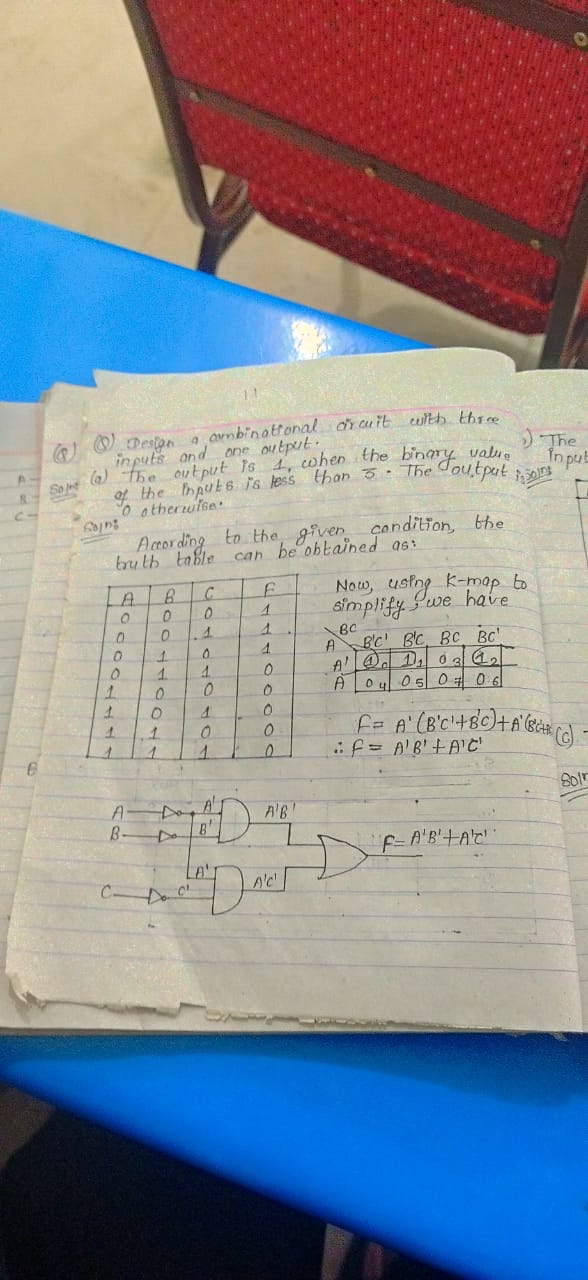 11
(Q) Design a combinational circuit with three
inputs and one output.
(a) The output is 1, when the binary value
of the inputs is less than 3. The output is
0 otherwise.
Soln:
According to the given condition, the
truth table can be obtained as:
A B C F
0 0 0 1
0 0 1 1
0 1 0 1
0 1 1 0
1 0 0 0
1 0 1 0
1 1 0 0
1 1 1 0
Now, using K-map to
simplify, we have
BC
A B'C' B'C BC BC'
A' 1 0 1 1 0 3 1 2
A 0 4 0 5 0 7 0 6
F = A'(B'C'+B'C)+A'(B'C'+B
∴ F = A'B'+A'C'
A A' A'B'
B B'
F=A'B'+A'C'
A'
C C' A'C'
(Q)
Soln
A
B
C
) The
input
Soln
(C)
Soln